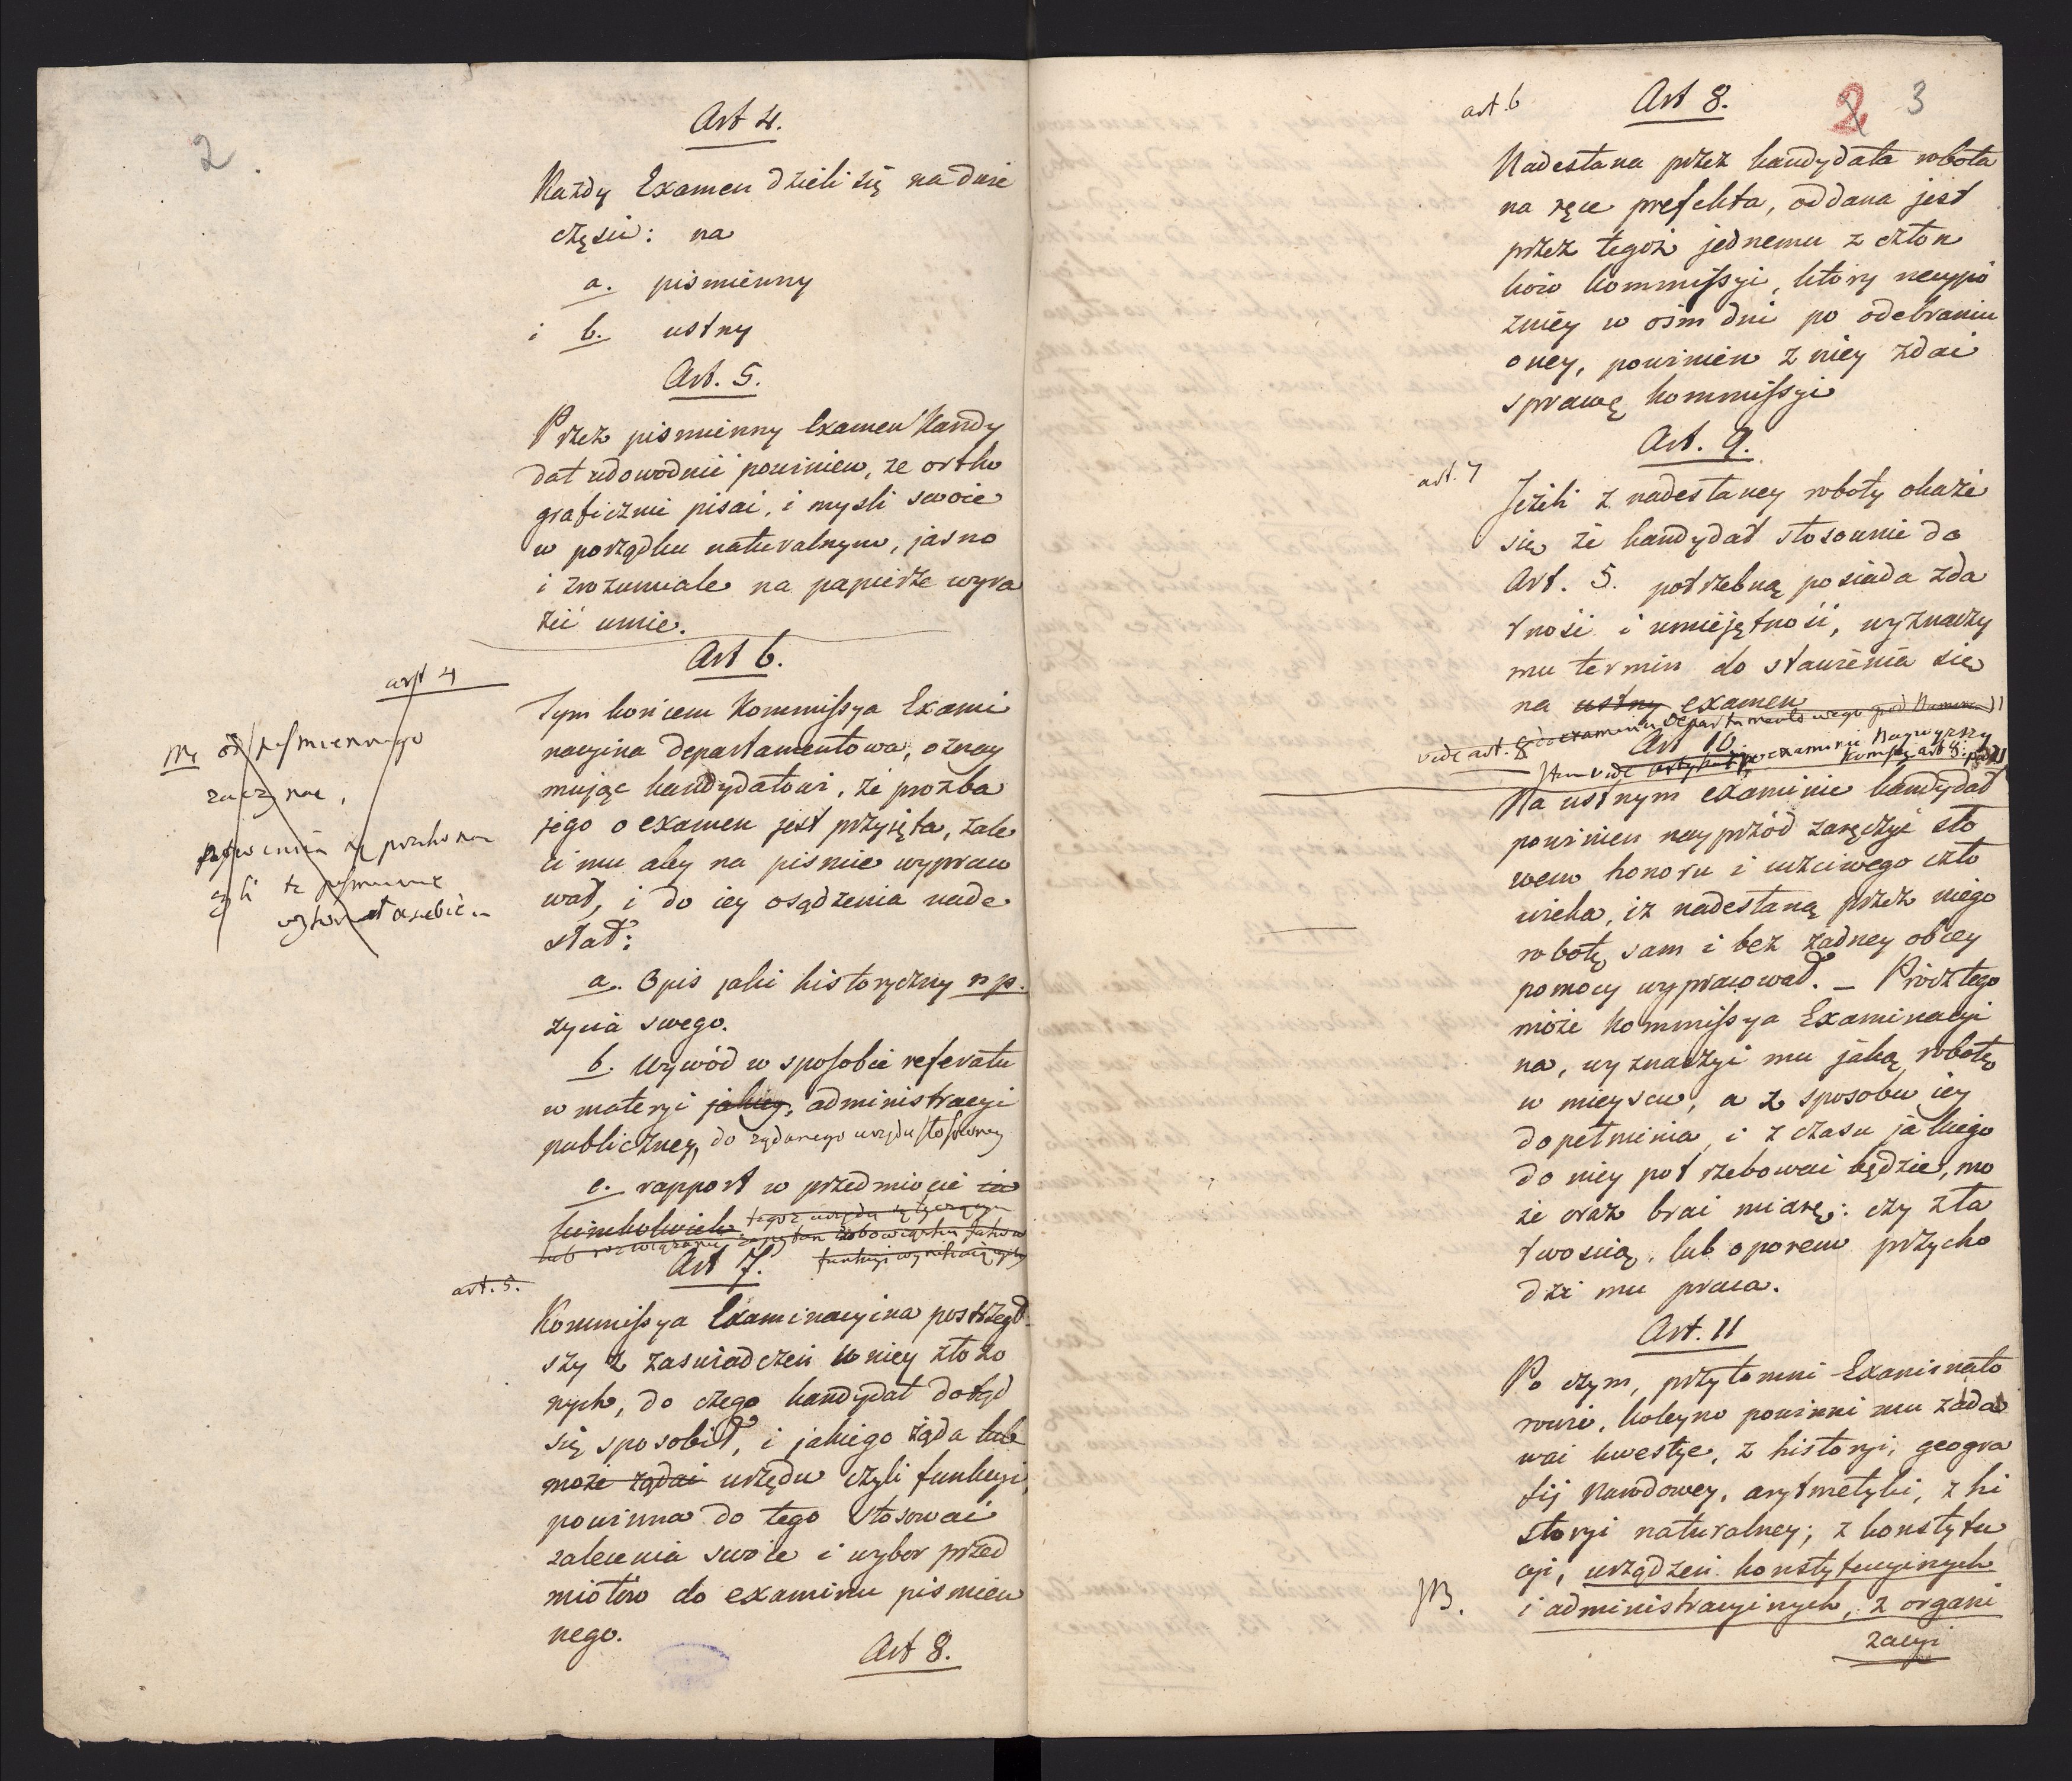 2
Art 4.
Każdy Examen dzieli się na dwie
częsci: na
a. pismienny
i b. ustny
Art. 5.
Przez pismienny Examen Kandy
dat udowodnić powinien, ze ortho
graficznie pisać, i mysli swoie
w porządku naturalnym, jasno
i zrozumiale na papierze wyra
zić umie.
Art 6.
art 4
Tym końcem Kommissya Exami
nacyina departamentowa, oznay
mując kandydatowi, że prozba
jego o examen jest przyięta, zale
ci mu aby na pismie wypraco
wał, i do iey osądzenia nade
słał:
od pismiennego
zaczynać,
a. Opis jaki historyczny np.
zycia swego.
b. Wywód w sposobie referatu
w materyi jakiey, administracyi
publiczney, do żądanego urzędu stosowney
c. rapport w przedmiocie ia
kimkolwiek. tegoż urzędu się tyczącym
lub rozwiązanie zapytań
Art 7.
art. 5.
Kommissya Examinacyina postrzegł
szy z zaswiadczeń w niey złożo
nych, do czego kandydat dotąd
się sposobił, i jakiego żąda lub
może żądać urzędu czyli funkcyi,
powinna do tego stosować
zalecenia swoie i wybor przed
miotów do examinu pismien
nego.
Art 8.
2 3
art. 6
Art 8.
Nadesłana przez kandydata robota
na ręce prefekta, oddana jest
przez tegoż jednemu z człon
ków kommissyi, który naypó
zniey w ośm dni po odebraniu
oney, powinien z niey zdać
sprawę kommissyi
Art. 9.
art. 7
Jeżeli z nadesłaney roboty okaże
się że kandydat stosownie do
Art. 5. potrzebną posiada zda
tność i umiejętność, wyznaczy
mu termin do stawienia się
na ustny examen
vide art. 8 do examinu Departamentowego pod Numerem 11
Art 10
Na ustnym examinie kandydat
powinien nayprzód zaręczyć sło
wem honoru i uczciwego czło
wieka, iz nadesłaną przez niego
robotę sam i bez żadney obcey
pomocy wypracował. – Prócz tego
może Kommissya Examinacyi
na, wyznaczyć mu jaką robotę
w mieyscu, a z sposobu iey
dopełnienia, i z czasu jakiego
do niey potrzebować będzie, mo
że oraz brać miarę: czy z ła
twoscią, lub oporem przycho
dzi mu praca.
Art. 11
Po czym, przytomni Examinato
rowie, koleyno powinni mu zada
wać kwestye, z historyi, geogra
fij Narodowey, arytmetyki, z hi
storyi naturalney; z konstytu
cyi, urządzeń konstytucyinych
NB.
i administracyinych, z organi
zacyi